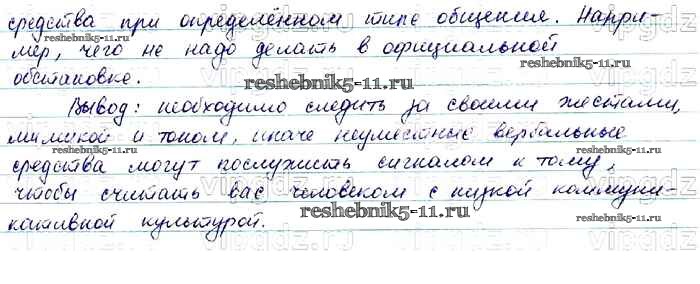 средства при определённом типе общения. Напри-
мер, чего не надо делать в официальной
reshebnik5-11.ru
обстановке.
reshebnik5-11.ru
Вывод: необходимо следить за своими жестами,
мимикой и тоном, иначе неуместные вербальные
reshebnik5-11.ru
средства могут послужить сигналом к тому,
чтобы считать вас человеком с низкой коммуни-
reshebnik5-11.ru
кативной культурой.
reshebnik5-11.ru